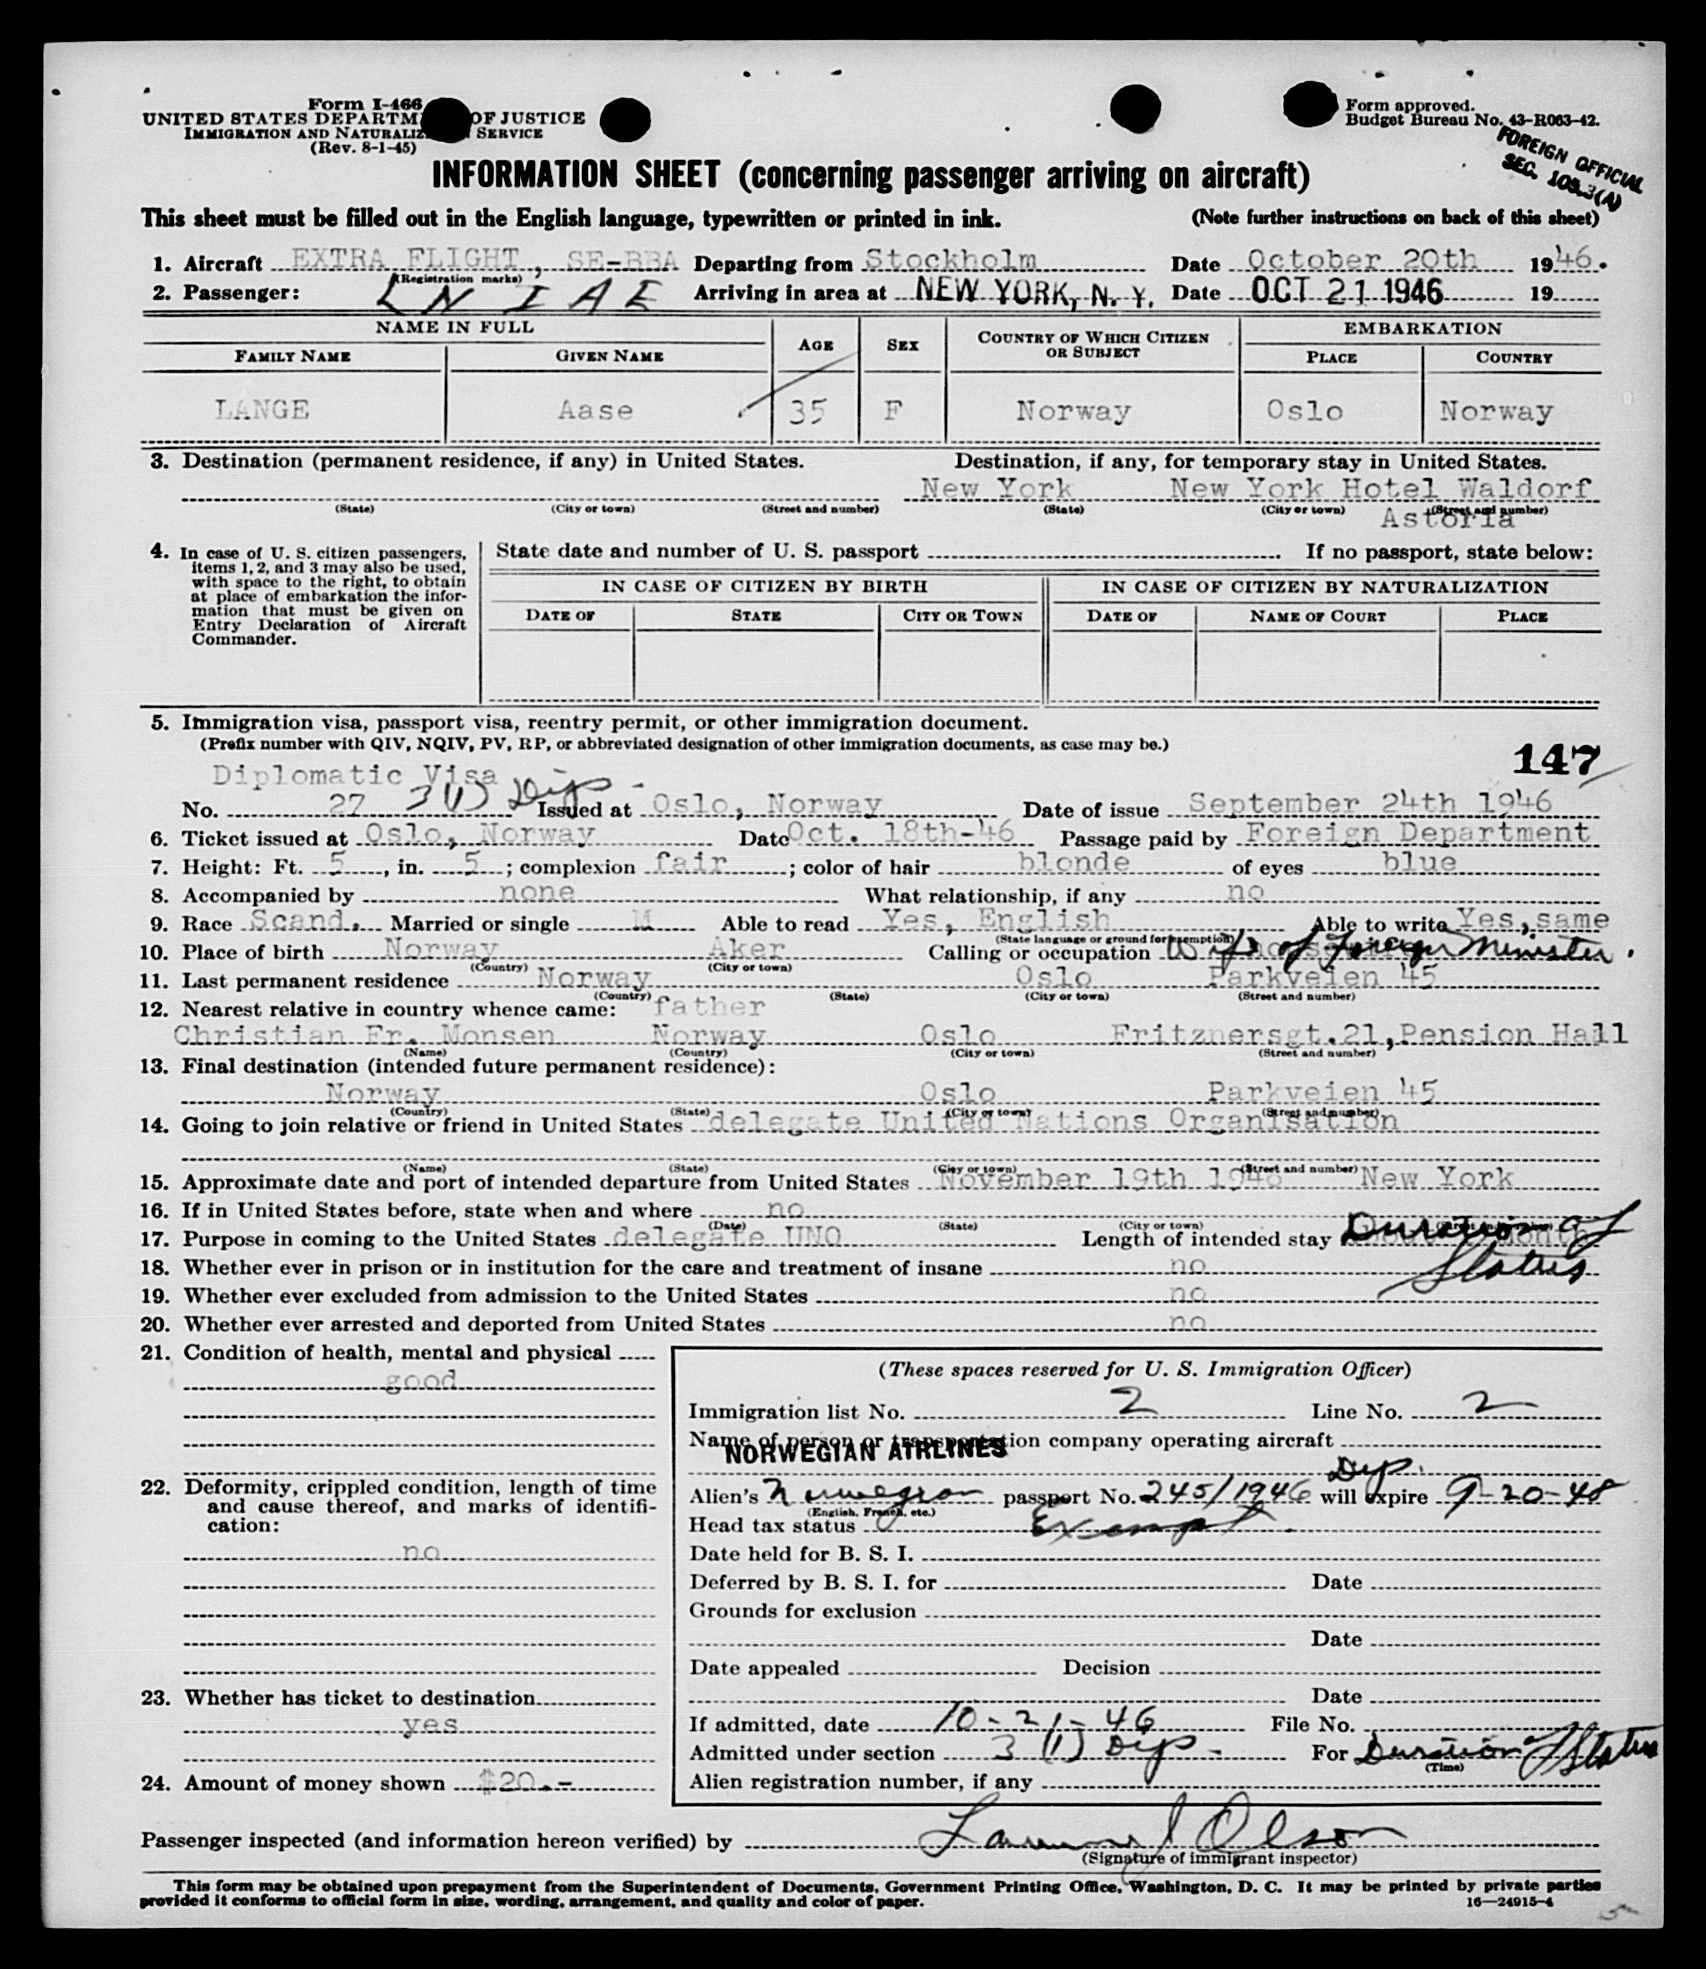 Form I-466
UNITED STATES DEPARTM OF JUSTICE
IMMIGRATION AND NATURALIZ SERVICE
(Rev. 8-1-45)
Form approved.
Budget Bureau No. 43-R063-42.
FOREIGN OFFICIAL
SEC. 105.3(A)
INFORMATION SHEET (concerning passenger arriving on aircraft)
This sheet must be filled out in the English language, typewritten or printed in ink. (Note further instructions on back of this sheet)
1. Aircraft EXTRA FLIGHT, SE-BBA Departing from Stockholm Date October 20th 1946.
(Registration marks)
2. Passenger: LN IAE Arriving in area at NEW YORK, N. Y. Date OCT 21 1946 19
NAME IN FULL AGE SEX COUNTRY OF WHICH CITIZEN OR SUBJECT EMBARKATION
FAMILY NAME GIVEN NAME PLACE COUNTRY
LANGE Aase 35 F Norway Oslo Norway
3. Destination (permanent residence, if any) in United States. Destination, if any, for temporary stay in United States.
New York New York Hotel Waldorf
(State) (City or town) (Street and number) (State) (City or town) (Street and number)
Astoria
4. In case of U. S. citizen passengers, items 1, 2, and 3 may also be used, with space to the right, to obtain at place of embarkation the information that must be given on Entry Declaration of Aircraft Commander.
State date and number of U. S. passport If no passport, state below:
IN CASE OF CITIZEN BY BIRTH IN CASE OF CITIZEN BY NATURALIZATION
DATE OF STATE CITY OR TOWN DATE OF NAME OF COURT PLACE
5. Immigration visa, passport visa, reentry permit, or other immigration document.
(Prefix number with QIV, NQIV, PV, RP, or abbreviated designation of other immigration documents, as case may be.)
147
Diplomatic Visa
No. 27 3(1) Dip Issued at Oslo, Norway Date of issue September 24th 1946
6. Ticket issued at Oslo, Norway Date Oct. 18th-46 Passage paid by Foreign Department
7. Height: Ft. 5, in. 5; complexion fair; color of hair blonde of eyes blue
8. Accompanied by none What relationship, if any no
9. Race Scand. Married or single M Able to read Yes, English Able to write Yes, same
(State language or ground for exemption)
10. Place of birth Norway Aker Calling or occupation Wife of Foreign Minister.
(Country) (City or town)
11. Last permanent residence Norway Oslo Parkveien 45
(Country) (State) (City or town) (Street and number)
12. Nearest relative in country whence came: father
Christian Fr. Monsen Norway Oslo Fritznersgt.21,Pension Hall
(Name) (Country) (City or town) (Street and number)
13. Final destination (intended future permanent residence):
Norway Oslo Parkveien 45
(Country) (State) (City or town) (Street and number)
14. Going to join relative or friend in United States delegate United Nations Organisation
(Name) (State) (City or town) (Street and number)
15. Approximate date and port of intended departure from United States November 19th 1946 New York
16. If in United States before, state when and where no
(Date) (State) (City or town)
17. Purpose in coming to the United States delegate UNO Length of intended stay Duration of Status
18. Whether ever in prison or in institution for the care and treatment of insane no
19. Whether ever excluded from admission to the United States no
20. Whether ever arrested and deported from United States no
21. Condition of health, mental and physical
good
22. Deformity, crippled condition, length of time and cause thereof, and marks of identification:
no
23. Whether has ticket to destination
yes
24. Amount of money shown $20.-
(These spaces reserved for U. S. Immigration Officer)
Immigration list No. 2 Line No. 2
Name of person or transportation company operating aircraft
NORWEGIAN AIRLINES
Dip.
Alien's Norwegian passport No. 245/1946 will expire 9-20-48
(English, French, etc.)
Head tax status Exempt.
Date held for B. S. I.
Deferred by B. S. I. for Date
Grounds for exclusion
Date
Date appealed Decision
Date
If admitted, date 10-21-46 File No.
Admitted under section 3 (1) Dip- For Duration of Status
(Time)
Alien registration number, if any
Passenger inspected (and information hereon verified) by Olson
(Signature of immigrant inspector)
This form may be obtained upon prepayment from the Superintendent of Documents, Government Printing Office, Washington, D. C. It may be printed by private parties
provided it conforms to official form in size, wording, arrangement, and quality and color of paper. 16—24915-4